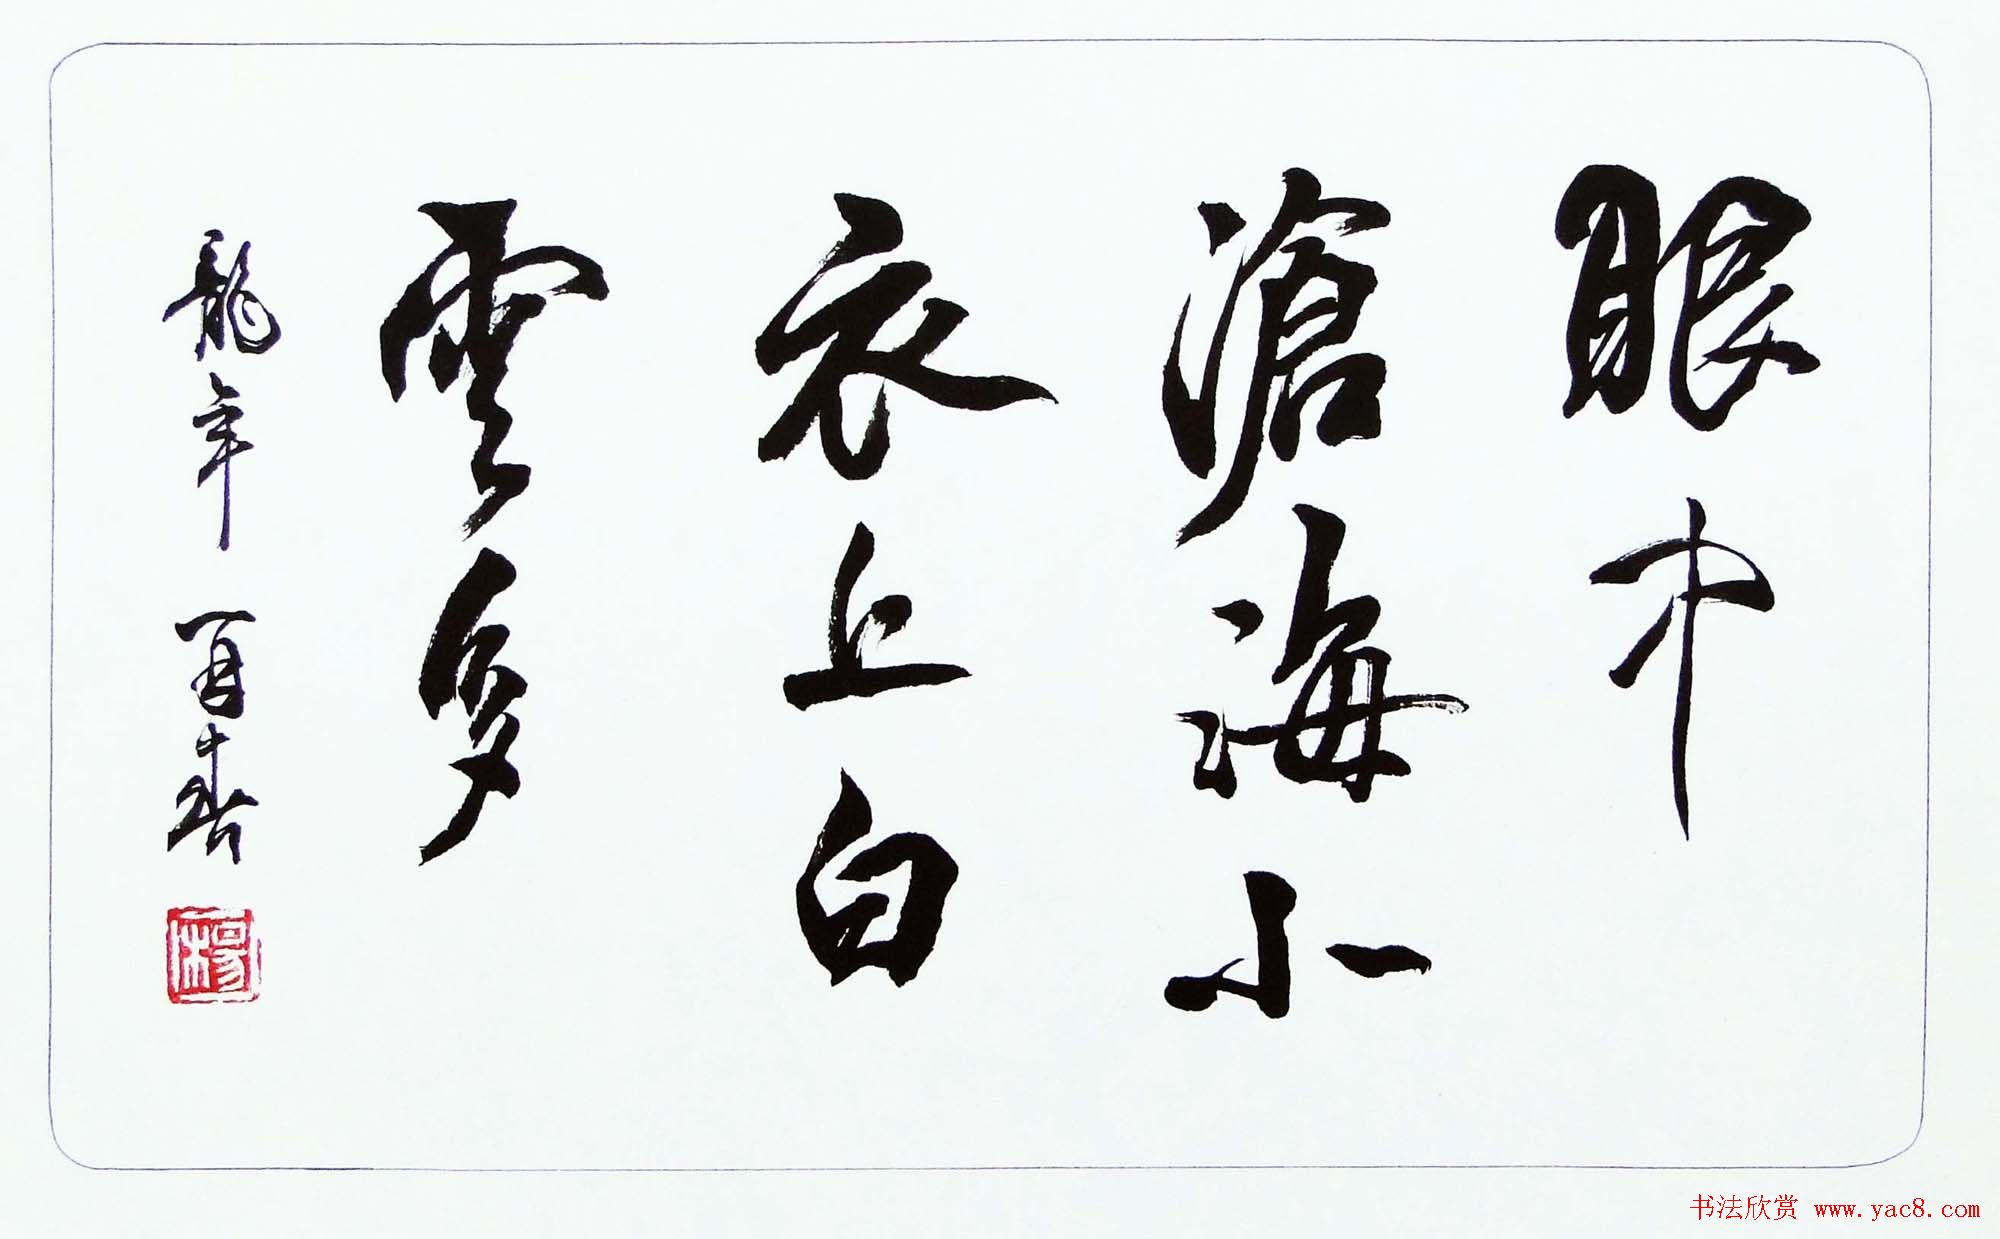 眼中
滄海小
衣上白
雲多
龍年 夏春
楊
书法欣赏 www.yac8.com